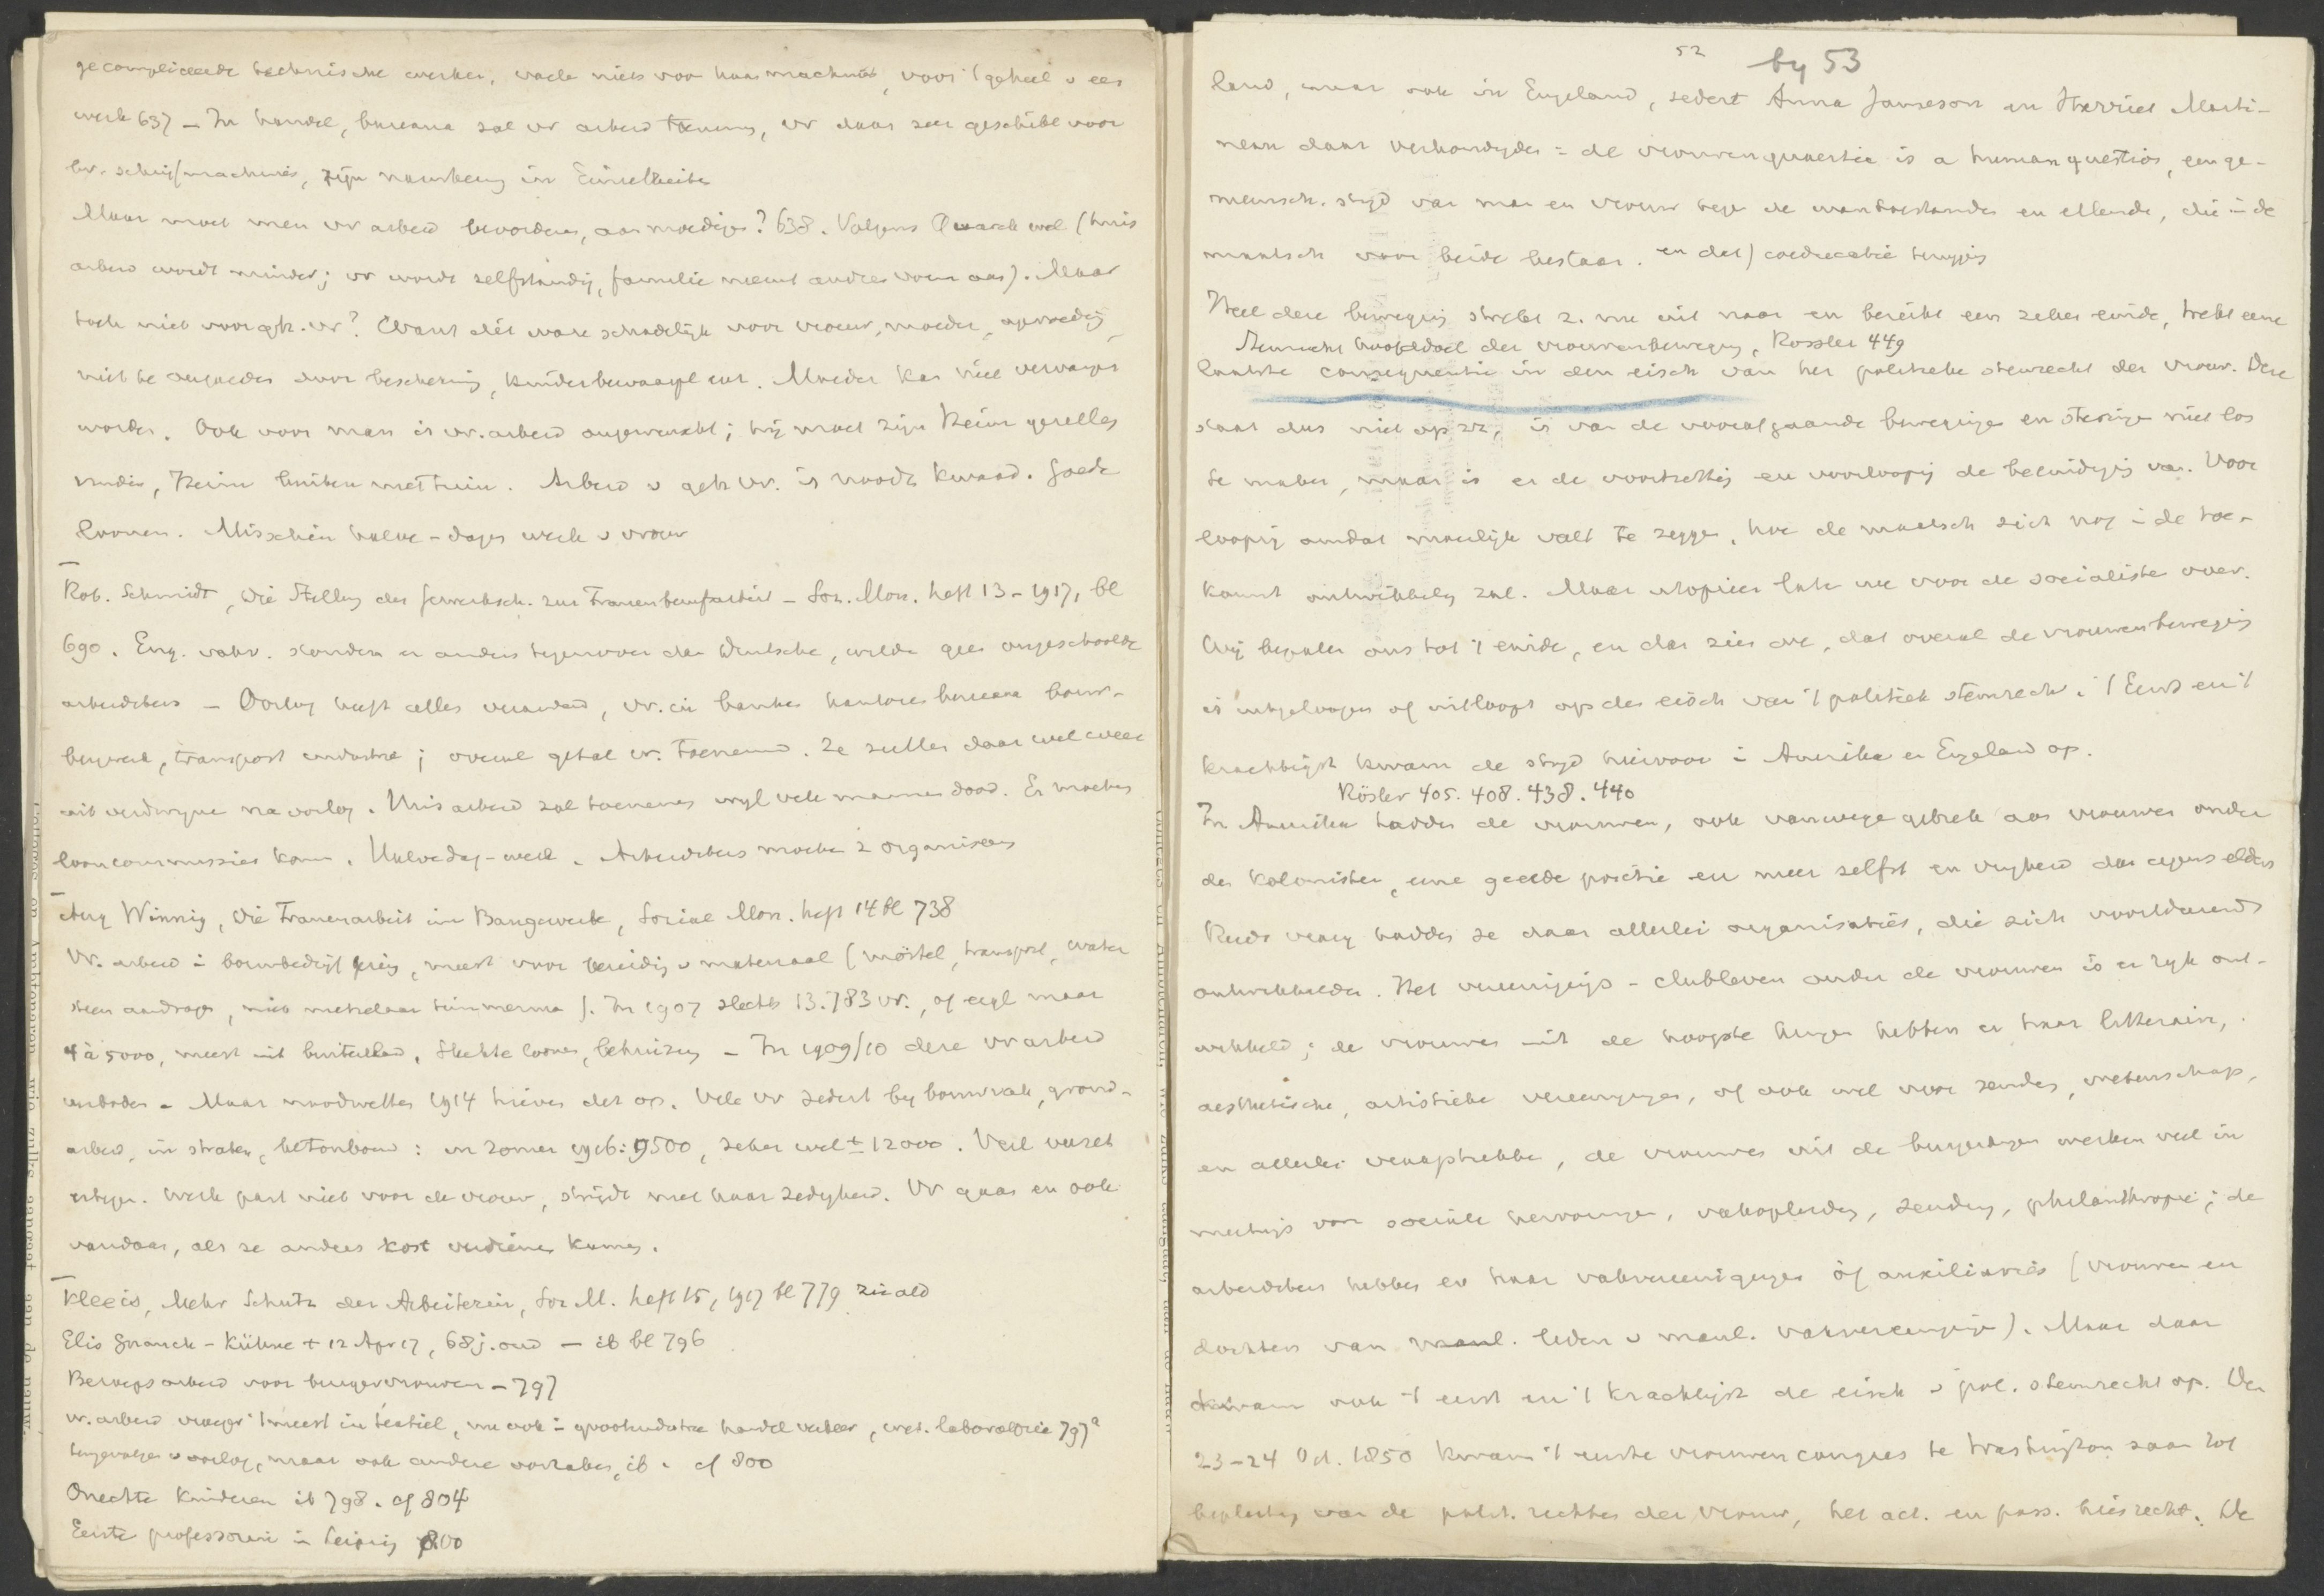 gecompliceerde technische werken, vaak niets voor haar machines, voor 't geheel v een
werk 637 – In handel, bureaux zal vr arbeid toenemen, vr daar zeer geschikt voor
bv. schrijfmachines, zijn nauwkeurig in Einzelheiten
Maar moet men vr arbeid bevorderen, aanmoedigen? 638. Volgens Quarck wel (huis
arbeid wordt minder; vr wordt zelfstandig, familie neemt andere vorm aan). Maar
toch niet voor geh. vr? Want dit ware schadelijk voor vrouw, moeder, opvoeding,
niet te vergoeden door bescherming, kinderbewaarpl enz. Moeder kan niet vervangen
worden. Ook voor man is vr. arbeid ongewenscht; hij moet zijn Heim gezellig
vinden, Heim buiten met tuin. Arbeid v geh vr. is noodz. kwaad. Goede
loonen. Misschien halve-dagen werk v vrouw
Rob. Schmidt, Die Stellung der Gewerksch. zur Frauenberufsarbeit – Soz. Mon. heft 13 – 1917, bl
690. Eng. vakv. stonden er anders tegenover dan Duitsche, wilden geen ongeschoolde
arbeidsters – Oorlog heeft alles veranderd, vr. in banken kantoren bureaux bouw-
bergwerk, transport industrie; overal getal vr. toenemend. Ze zullen daar wel weer
uit verdwijnen na oorlog. Huisarbeid zal toenemen wijl vele mannen dood. Er moeten
looncommissies komen. Halvedag-werk. Arbeidsters moeten z organiseeren
Aug Winnig, Die Frauenarbeit im Baugewerbe, Sozial. Mon. heft 14 bl 738
Vr. arbeid i bouwbedrijf gering, meest voor bereiding v materiaal (mörtel, transport, water
steen aandragen, niet metselaar timmerman). In 1907 slechts 13.783 vr., of eigl maar
4 à 5000, meest uit buitenland. Slechte loonen, behuizing – In 1909/10 deze vr arbeid
verboden – Maar noodwetten 1914 hieven dit op. Vele vr sedert bij bouwvak, grond-
arbeid, in straten, betonbouw: in zomer 1916: 9500, zeker wel ± 12000. Veel verzet
ertegen. Werk past niet voor de vrouw, strijdt met haar zedigheid. Vr gaan en ook
vandaar, als ze anders kost verdienen kunnen.
Kleeis, Mehr Schutz der Arbeiterin, Soz M. heft 15, 1917 bl 779 zie ald
Elis Gnauck-Kühne † 12 Apr 17, 68 j. oud – ib bl 796
Beroepsarbeid voor burgervrouwen – 797
vr. arbeid vroeger 't meest in textiel, nu ook i grootindustrie handel verkeer, wet. laboratoria 797a
tengevolge v oorlog, maar ook andere oorzaken, ib. cf 800
Onechte kinderen ib 798. cf 804
Eerste professorin in Leipzig 800
52 by 53
land, maar ook in Engeland, sedert Anna Jameson en Harriet Marti-
neau daar verkondigden: de vrouwenquaestie is a human question, een ge-
meensch. strijd van man en vrouw tegen de wantoestanden en ellende, die in de
maatsch voor beide bestaan. en dat) coeducatie teruggang
Heel deze beweging strekt z. nu uit naar en bereikt een zeker einde, trekt eene
Annecht hoofddoel der vrouwenbeweging, Rössler 449
laatste consequentie in den eisch van het politieke stemrecht der vrouw. Deze
staat dus niet op zz, is van de voorafgaande bewegingen en stemingen niet los
te maken, maar is er de voortzetting en voorloopig de beëindiging van. Voor
loopig omdat moeilijk valt te zeggen, hoe de maatsch zich nog i de toe-
komst ontwikkelen zal. Maar utopieën laten we voor de socialisten over.
Wij bepalen ons tot 't einde, en dan zien we, dat overal de vrouwenbeweging
is uitgeloopen of uitloopt op den eisch van 't politiek stemrecht. 't Eerst en 't
krachtigst kwam de strijd hiervoor i Amerika en Engeland op.
Rösler 405. 408. 438. 440
In Amerika hadden de vrouwen, ook vanwege gebrek aan vrouwen onder
de kolonisten, eene goede positie en meer zelfst en vrijheid dan ergens elders
Reeds vroeg hadden ze daar allerlei organisaties, die zich voortdurend
ontwikkelden. Het vereenigings-clubleven onder de vrouwen is er rijk ont-
wikkeld; de vrouwen uit de hoogste kringen hebben er haar litteraire,
aesthetische, artistieke vereenigingen, of ook wel voor zending, wetenschap,
en allerlei vakophebben, de vrouwen uit de burgerkringen werken veel in
meetings voor sociale hervormingen, vakopleiding, zending, philanthropie; de
arbeidsters hebben er haar vakvereenigingen òf auxiliaries (vrouwen en
dochters van manl. leden v manl. vakvereenigingen). Maar daar
kwam ook 't eerst en 't krachtigst de eisch v pol. stemrecht op. Den
23–24 Oct. 1850 kwam 't eerste vrouwencongres te Washington saam tot
bepleiting van de polit. rechten der vrouw, het act. en pass. kiesrecht. De